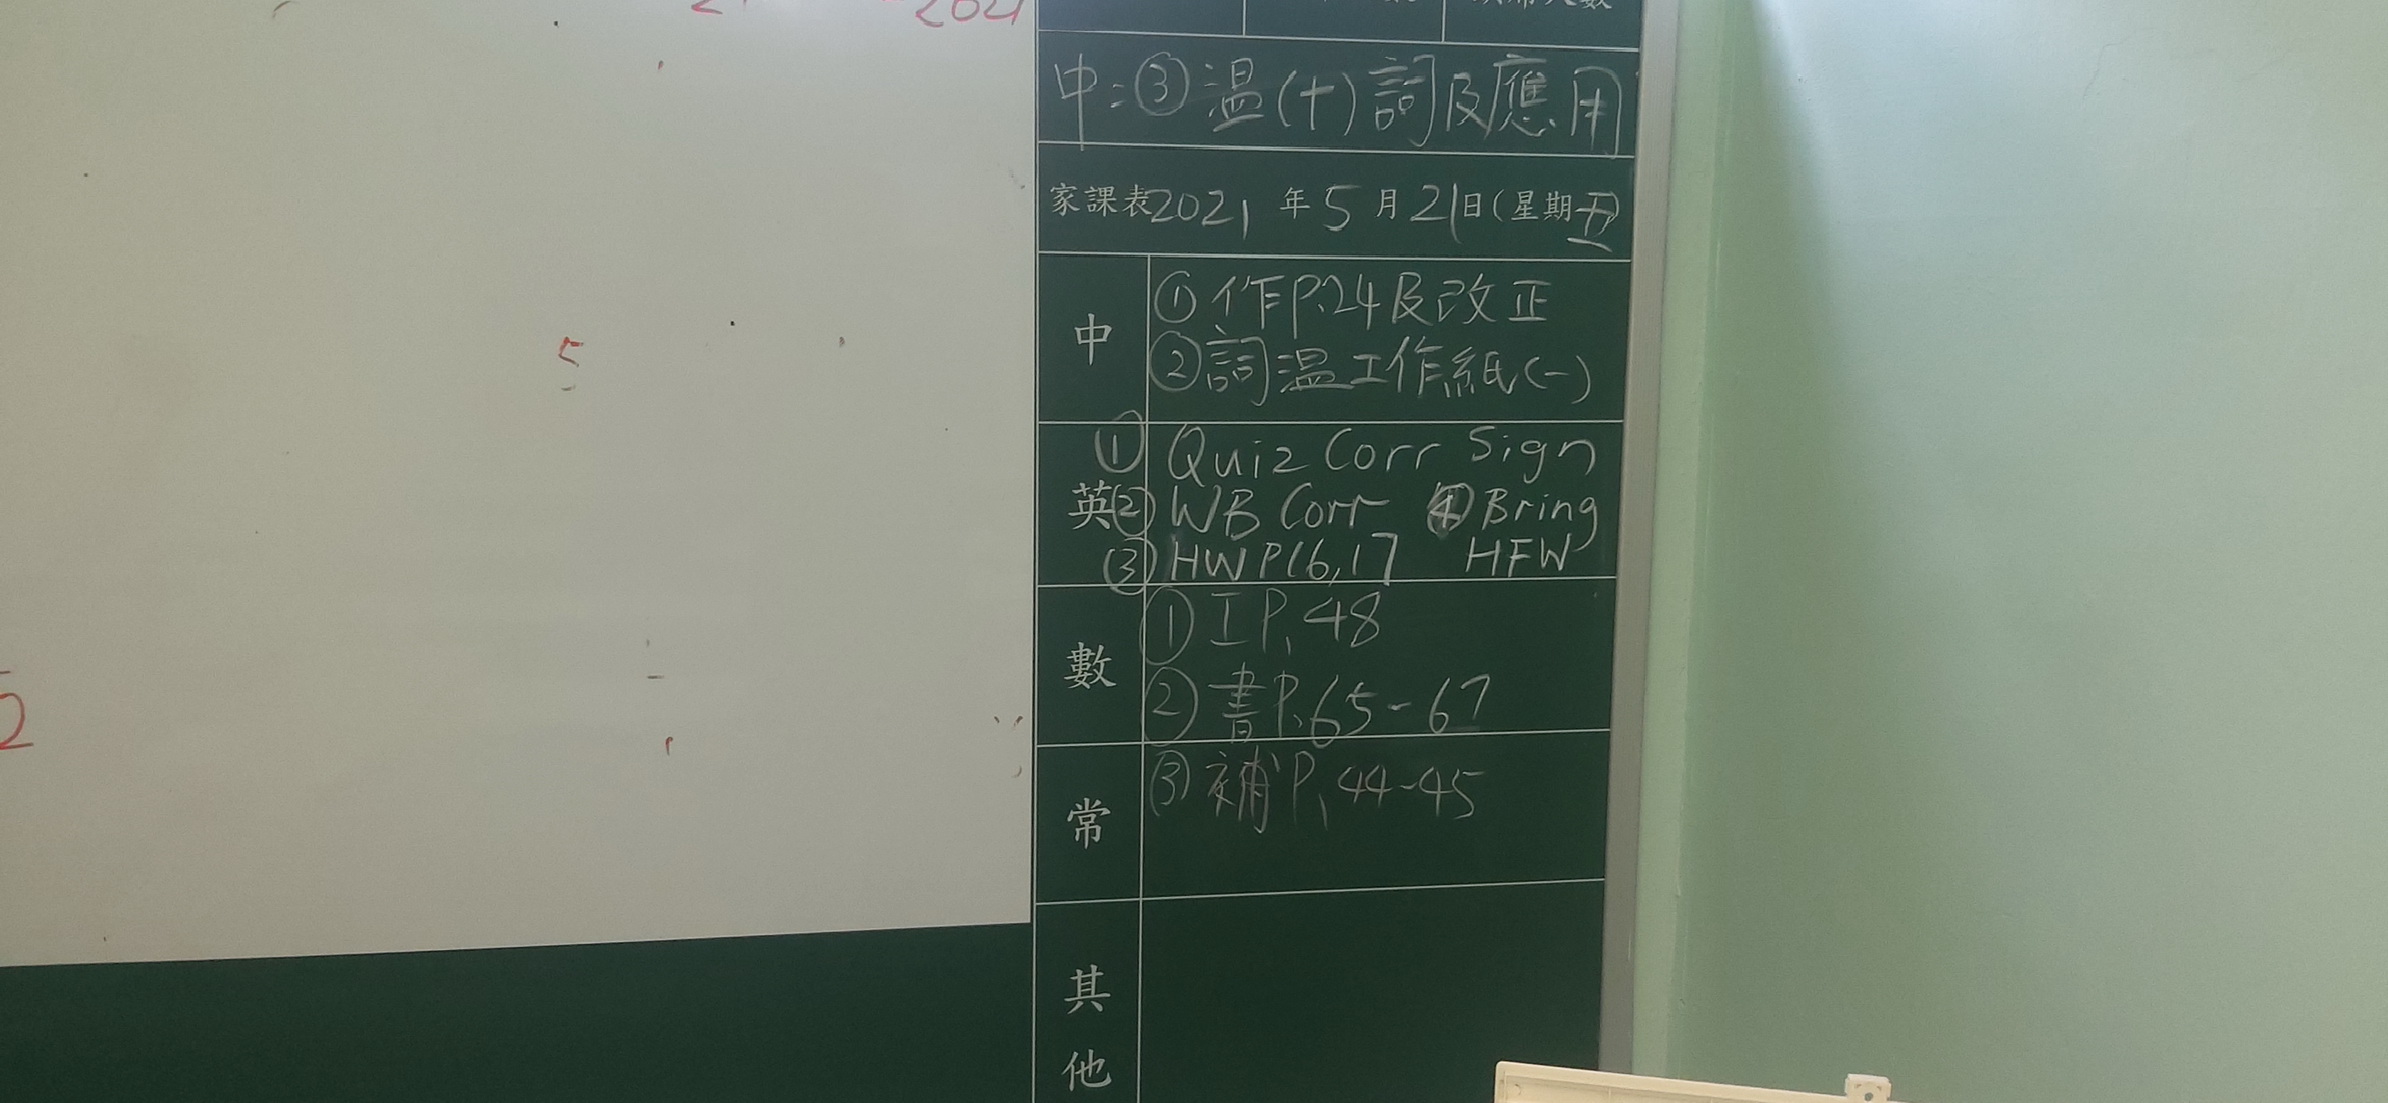 2021
中：③溫(十)詞及應用
家課表2021年5月21日(星期五)
中
①作P.24及改正
②詞溫工作紙(一)
英
① Quiz Corr Sign
② WB Corr ④ Bring
③ HW P16,17 HFW
數
① 工P.48
② 書P.65-67
常
③ 補P.44-45
其
他
5
2